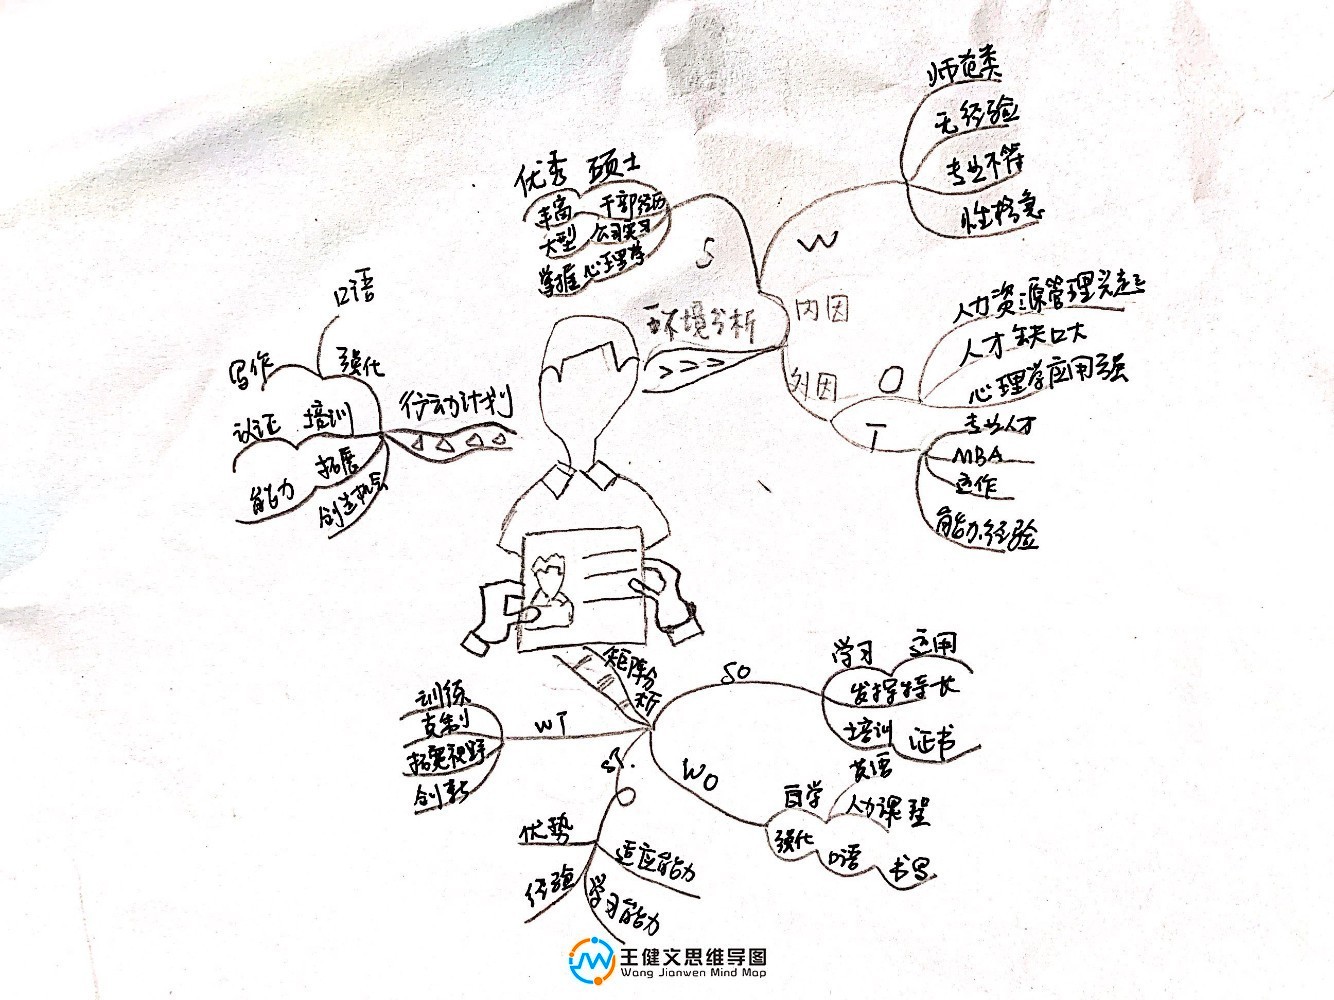 环境分析
内因
S
优秀 硕士
丰富 干部经历
大型 公司实习
掌握 心理学
W
师范类
无经验
专业不符
性格急
外因
O
人力资源管理兴起
人才缺口大
心理学应用强
T
专业人才
MBA
运作
能力.经验
矩阵分析
SO
学习 运用
发挥特长
培训 证书
WO
自学 英语
人力课程
强化 口语 书写
ST.
优势
适应能力
经验
学习能力
WT
训练
克制
拓宽视野
创新
行动计划
强化 口语
写作
培训 认证
拓展 能力
创造机会
王健文思维导图
Wang Jianwen Mind Map